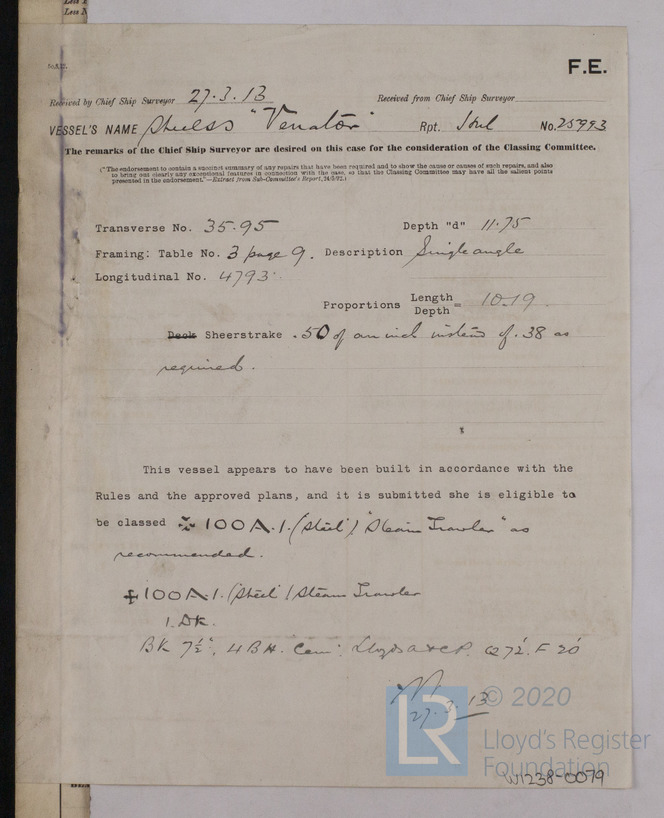 F.E.
Received by Chief Ship Surveyor 27.3.13 Received from Chief Ship Surveyor
VESSEL'S NAME "Venator" Rpt. Hul No. 25993
The remarks of the Chief Ship Surveyor are desired on this case for the consideration of the Classing Committee.
("The endorsement to contain a succinct summary of any repairs that have been required and to show the cause or causes of such repairs, and also
to bring out clearly any exceptional features in connection with the case, so that the Classing Committee may have all the salient points
presented in the endorsement."—Extract from Sub-Committee's Report,
Transverse No. 35.95 Depth "d" 11.75
Framing: Table No. 3 page 9. Description Single angle
Longitudinal No. 4793
Proportions Length
Depth = 10.19
Deck Sheerstrake .50 of an inch instead of .38 as
required.
This vessel appears to have been built in accordance with the
Rules and the approved plans, and it is submitted she is eligible to
be classed ✠ 100A.1. (Steel) "Steam Trawler" as
recommended.
✠100A.1. (Steel) Steam Trawler
1 Dk.
BK 7½", 4 BH. Cem: Lloyds A & C.P. Q 72' F 20'
27.3.13
© 2020
LR
Lloyd's Register
Foundation
W1238-0079